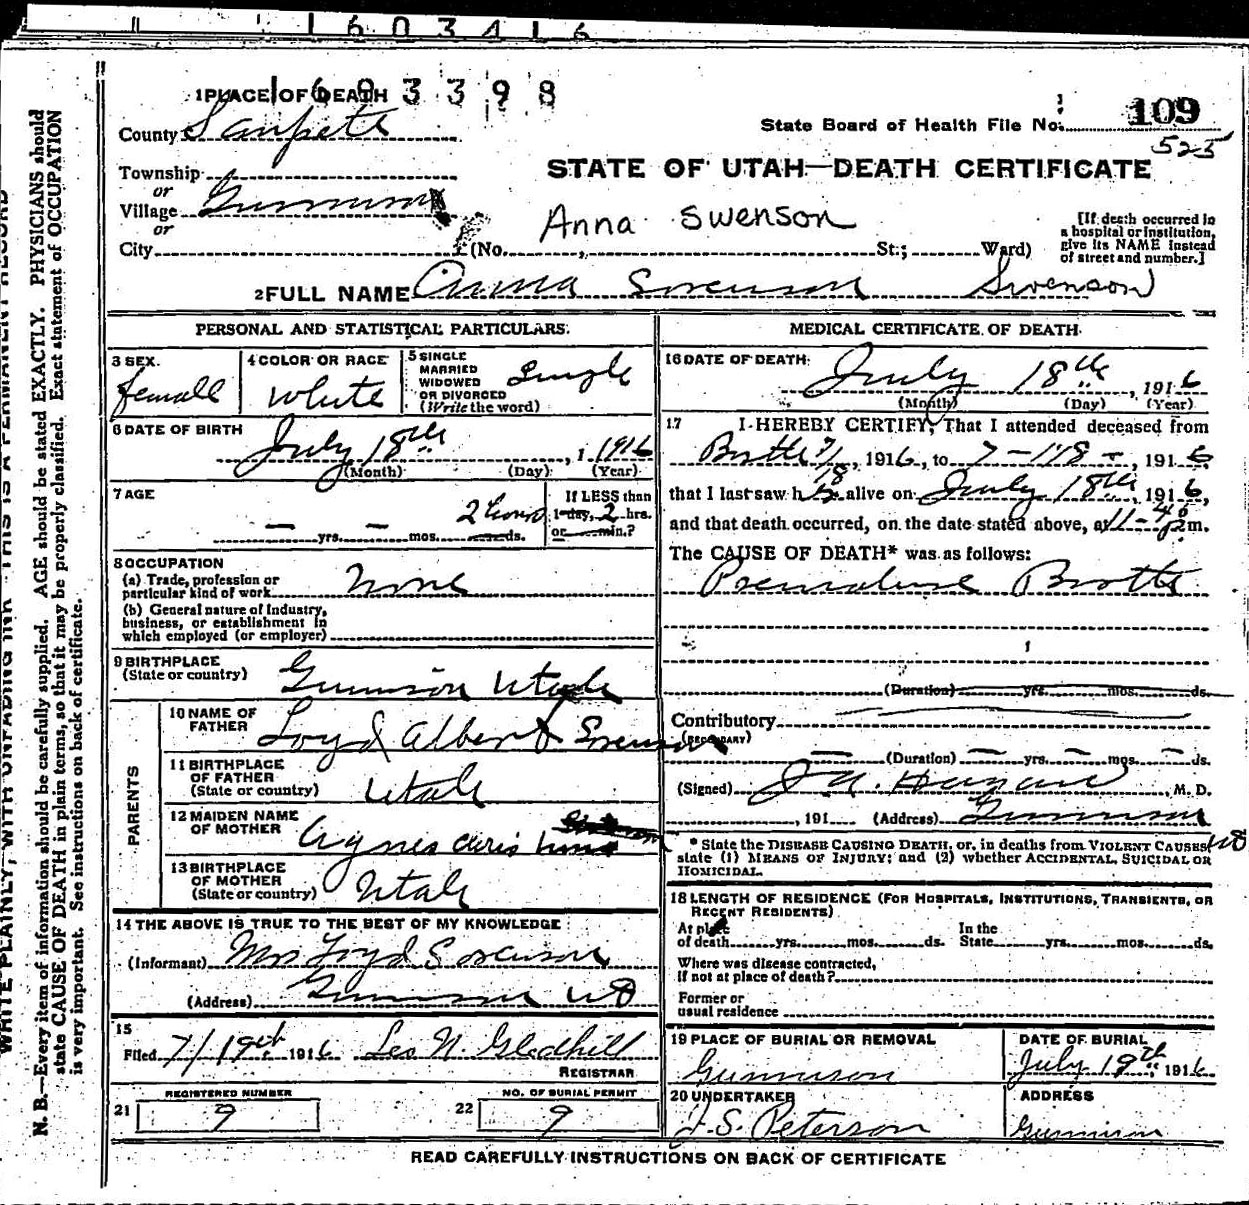 1603416
1693398
1 PLACE OF DEATH
County Sanpete
State Board of Health File No. 109
525
STATE OF UTAH—DEATH CERTIFICATE
Township
or
Village Gunnison
or
City (No. St.; Ward)
Anna Swenson
[If death occurred in
a hospital or institution,
give its NAME instead
of street and number.]
2 FULL NAME Anna Sorenson Swenson
PERSONAL AND STATISTICAL PARTICULARS.
3 SEX.
female
4 COLOR OR RACE
White
5 SINGLE
MARRIED
WIDOWED
OR DIVORCED
(Write the word)
Single
6 DATE OF BIRTH
July 18th, 1 1916
(Month) (Day) (Year)
7 AGE
— yrs. — mos. 2 hours ds.
If LESS than
1 day, 2 hrs.
or min.?
8 OCCUPATION
(a) Trade, profession or
particular kind of work None
(b) General nature of industry,
business, or establishment in
which employed (or employer)
9 BIRTHPLACE
(State or country) Gunnison Utah
PARENTS
10 NAME OF
FATHER Loyd Albert Sorenson
11 BIRTHPLACE
OF FATHER
(State or country) Utah
12 MAIDEN NAME
OF MOTHER Agnes
13 BIRTHPLACE
OF MOTHER
(State or country) Utah
14 THE ABOVE IS TRUE TO THE BEST OF MY KNOWLEDGE
(Informant) Mrs Loyd Sorenson
(Address) Gunnison
15
Filed 7/19th 1916 Leo N. Gledhill
REGISTRAR
REGISTERED NUMBER
21 9
NO. OF BURIAL PERMIT
22 9
MEDICAL CERTIFICATE OF DEATH
16 DATE OF DEATH:
July 18th, 1916
(Month) (Day) (Year)
17 I HEREBY CERTIFY, That I attended deceased from
Birth 7/18, 1916, to 7-18-, 1916,
that I last saw h alive on July 18th, 1916,
and that death occurred, on the date stated above, at 11-40 m.
The CAUSE OF DEATH* was as follows:
Premature Birth
(Duration) yrs. mos. ds.
Contributory
(SECONDARY)
— (Duration) — yrs. — mos. — ds.
(Signed) J A. Hagan, M. D.
, 191 (Address) Gunnison
* State the DISEASE CAUSING DEATH, or, in deaths from VIOLENT CAUSES
state (1) MEANS OF INJURY; and (2) whether ACCIDENTAL, SUICIDAL OR
HOMICIDAL.
18 LENGTH OF RESIDENCE (FOR HOSPITALS, INSTITUTIONS, TRANSIENTS, OR
RECENT RESIDENTS)
At place
of death yrs. mos. ds.
In the
State yrs. mos. ds.
Where was disease contracted,
if not at place of death?
Former or
usual residence
19 PLACE OF BURIAL OR REMOVAL
Gunnison
DATE OF BURIAL
July 19th 1916
20 UNDERTAKER
J. S. Peterson
ADDRESS
Gunnison
READ CAREFULLY INSTRUCTIONS ON BACK OF CERTIFICATE
WRITE PLAINLY, WITH UNFADING INK THIS IS A PERMANENT RECORD
N. B.—Every item of information should be carefully supplied. AGE should be stated EXACTLY. PHYSICIANS should
state CAUSE OF DEATH in plain terms, so that it may be properly classified. Exact statement of OCCUPATION
is very important. See instructions on back of certificate.